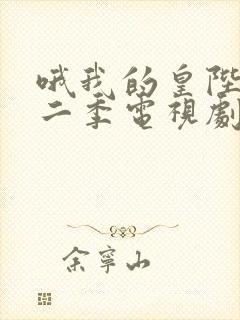 哦我的皇陛
二季電視劇
余寧山